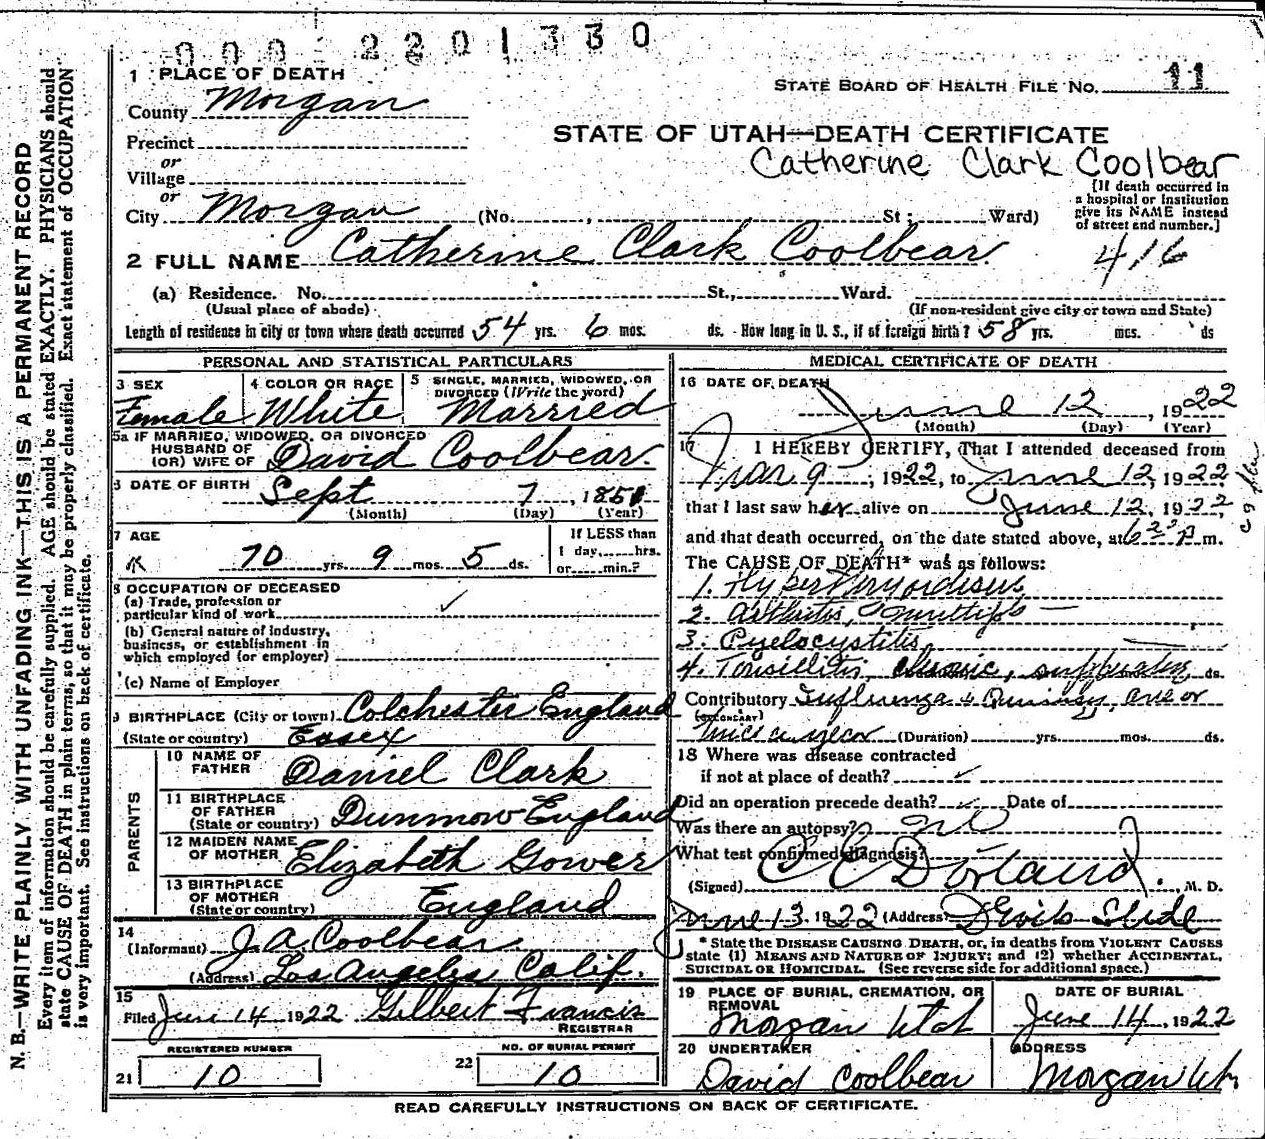 000 2201330
1 PLACE OF DEATH
STATE BOARD OF HEALTH FILE NO. 11
County Morgan
STATE OF UTAH—DEATH CERTIFICATE
Precinct
Catherine Clark Coolbear
or
Village
or
[If death occurred in a hospital or institution give its NAME instead of street and number.]
City Morgan (No. , St; Ward)
416
2 FULL NAME Catherine Clark Coolbear
(a) Residence. No. St., Ward.
(Usual place of abode) (If non-resident give city or town and State)
Length of residence in city or town where death occurred 54 yrs. 6 mos. ds. How long in U. S., if of foreign birth? 58 yrs. mos. ds
PERSONAL AND STATISTICAL PARTICULARS
3 SEX
Female
4 COLOR OR RACE
White
5 SINGLE, MARRIED, WIDOWED, OR DIVORCED (Write the word)
Married
5a IF MARRIED, WIDOWED, OR DIVORCED
HUSBAND OF
(OR) WIFE OF David Coolbear.
6 DATE OF BIRTH Sept 7, 1851
(Month) (Day) (Year)
7 AGE
70 yrs. 9 mos. 5 ds.
If LESS than
1 day, hrs.
or min.?
8 OCCUPATION OF DECEASED
(a) Trade, profession or
particular kind of work ✓
(b) General nature of Industry,
business, or establishment in
which employed (or employer)
(c) Name of Employer
9 BIRTHPLACE (City or town) Colchester England
(State or country) Essex
PARENTS
10 NAME OF
FATHER Daniel Clark
11 BIRTHPLACE
OF FATHER
(State or country) Dunmow England
12 MAIDEN NAME
OF MOTHER Elizabeth Gower
13 BIRTHPLACE
OF MOTHER
(State or country) England
14
(Informant) J. A. Coolbear
(Address) Los Angeles Calif.
15
Filed June 14 1922 Gilbert Francis
REGISTRAR
REGISTERED NUMBER
21 10
NO. OF BURIAL PERMIT
22 10
MEDICAL CERTIFICATE OF DEATH
16 DATE OF DEATH
June 12, 1922
(Month) (Day) (Year)
17 I HEREBY CERTIFY, That I attended deceased from
Mar 9, 1922, to June 12, 1922
that I last saw her alive on June 12, 1922,
and that death occurred, on the date stated above, at 6 P m.
The CAUSE OF DEATH* was as follows:
1. Hyperthyroidism
2. Arthritis, multiple
3. Pyelocystitis
4. Tonsillitis chronic, ds.
Contributory Influenza & Quinsy, one or
twice a year (Duration) yrs. mos. ds.
18 Where was disease contracted
if not at place of death? ✓
Did an operation precede death? ✓ Date of
Was there an autopsy? no
What test confirmed diagnosis?
(Signed) C E Dorland, M. D.
June 13, 1922 (Address) Devils Slide
* State the DISEASE CAUSING DEATH, or, in deaths from VIOLENT CAUSES
state (1) MEANS AND NATURE OF INJURY; and (2) whether ACCIDENTAL,
SUICIDAL OR HOMICIDAL. (See reverse side for additional space.)
19 PLACE OF BURIAL, CREMATION, OR
REMOVAL
Morgan Utah
DATE OF BURIAL
June 14, 1922
20 UNDERTAKER
David Coolbear
ADDRESS
Morgan Utah
READ CAREFULLY INSTRUCTIONS ON BACK OF CERTIFICATE.
N. B.—WRITE PLAINLY WITH UNFADING INK—THIS IS A PERMANENT RECORD
Every item of information should be carefully supplied. AGE should be stated EXACTLY. PHYSICIANS should
state CAUSE OF DEATH in plain terms, so that it may be properly classified. Exact statement of OCCUPATION
is very important. See instructions on back of certificate.